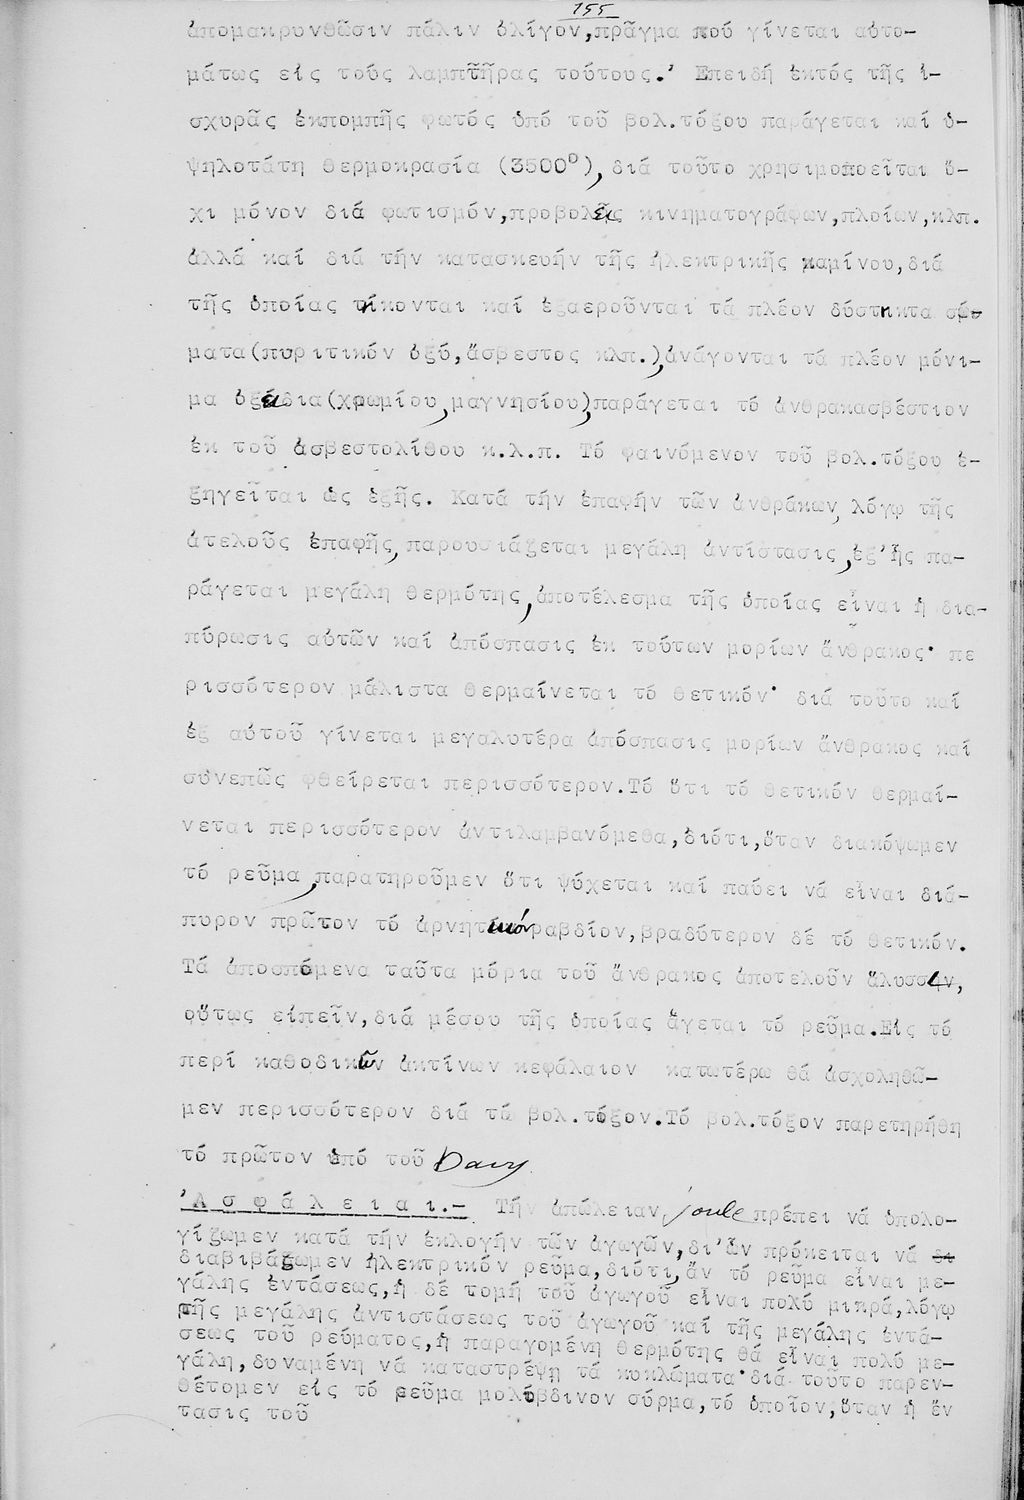 155
ἀπομακρυνθῶσιν πάλιν ὀλίγον,πρᾶγμα πού γίνεται αὐτο-
μάτως εἰς τούς λαμπτῆρας τούτους.' Επειδή ἐκτός τῆς ἰ-
σχυρᾶς ἐκπομπῆς φωτός ὑπό τοῦ βολ.τόξου παράγεται καί ὑ-
ψηλοτάτη θερμοκρασία (3500⁰),διά τοῦτο χρησιμοποεῖται ὄ-
χι μόνον διά φωτισμόν,προβολεῖς κινηματογράφων,πλοίων,κλπ.
ἀλλά καί διά τήν κατασκευήν τῆς ἠλεκτρικῆς καμίνου,διά
τῆς ὁποίας τήκονται καί ἐξαεροῦνται τά πλέον δύστηκτα σώ-
ματα(πυριτικόν ὀξύ,ἄσβεστος κλπ.),ἀνάγονται τά πλέον μόνι-
μα ὀξείδια(χρωμίου,μαγνησίου),παράγεται τό ἀνθρακασβέστιον
ἐκ τοῦ ἀσβεστολίθου κ.λ.π. Τό φαινόμενον τοῦ βολ.τόξου ἐ-
ξηγεῖται ὡς ἑξῆς. Κατά τήν ἐπαφήν τῶν ἀνθράκων, λόγῳ τῆς
ἀτελοῦς ἐπαφῆς, παρουσιάζεται μεγάλη ἀντίστασις,ἐξ'ἧς πα-
ράγεται μεγάλη θερμότης,ἀποτέλεσμα τῆς ὁποίας εἶναι ἡ δια-
πύρωσις αὐτῶν καί ἀπόσπασις ἐκ τούτων μορίων ἄνθρακος· πε
ρισσότερον μάλιστα θερμαίνεται τό θετικόν· διά τοῦτο καί
ἐξ αὐτοῦ γίνεται μεγαλυτέρα ἀπόσπασις μορίων ἄνθρακος καί
συνεπῶς φθείρεται περισσότερον.Τό ὅτι τό θετικόν θερμαί-
νεται περισσότερον ἀντιλαμβανόμεθα,διότι,ὅταν διακόψωμεν
τό ρεῦμα,παρατηροῦμεν ὅτι ψύχεται καί παύει νά εἶναι διά-
πυρον πρῶτον τό ἀρνητικόν ραβδίον,βραδύτερον δέ τό θετικόν.
Τά ἀποσπόμενα ταῦτα μόρια τοῦ ἄνθρακος ἀποτελοῦν ἅλυσσιν,
οὕτως εἰπεῖν,διά μέσου τῆς ὁποίας ἄγεται τό ρεῦμα.Εἰς τό
περί καθοδικῶν ἀκτίνων κεφάλαιον κατωτέρω θά ἀσχοληθῶ-
μεν περισσότερον διά τό βολ.τόξον.Τό βολ.τόξον παρετηρήθη
τό πρῶτον ὑπό τοῦ Davy
'Α σ φ ά λ ε ι α ι.- Τήν ἀπώλειαν joule πρέπει νά ὑπολο-
γίζωμεν κατά τήν ἐκλογήν τῶν ἀγωγῶν,δι'ὧν πρόκειται νά δι
διαβιβάζωμεν ἠλεκτρικόν ρεῦμα,διότι,ἄν τό ρεῦμα εἶναι με-
γάλης ἐντάσεως,ἡ δέ τομή τοῦ ἀγωγοῦ εἶναι πολύ μικρά,λόγῳ
τῆς μεγάλης ἀντιστάσεως τοῦ ἀγωγοῦ καί τῆς μεγάλης ἐντά-
σεως τοῦ ρεύματος,ἡ παραγομένη θερμότης θά εἶναι πολύ με-
γάλη,δυναμένη νά καταστρέψῃ τά κυκλώματα·διά τοῦτο παρεν-
θέτομεν εἰς τό ρεῦμα μολύβδινον σύρμα,τό ὁποῖον,ὅταν ἡ ἔν
τασις τοῦ